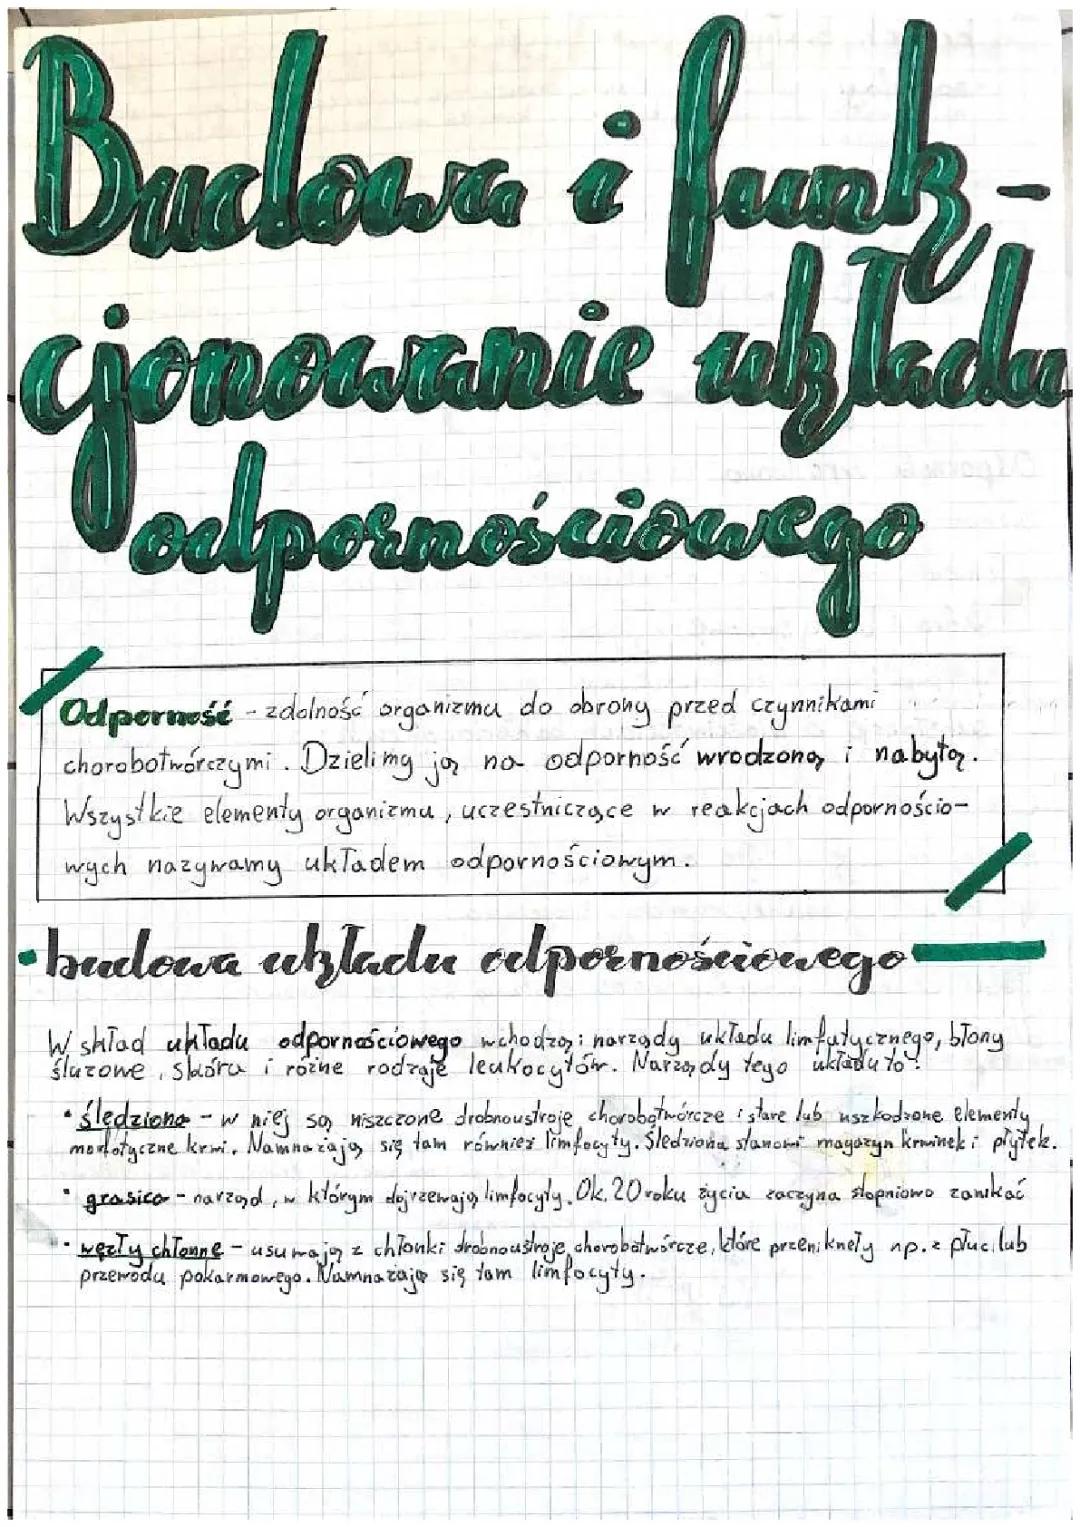 Budowa i funk-
cjonowanie układu
odpornościowego
Odporność - zdolność organizmu do obrony przed czynnikami
chorobotwórczymi. Dzielimy ją na odporność wrodzoną i nabytą.
Wszystkie elementy organizmu, uczestniczące w reakcjach odpornościo-
wych nazywamy układem odpornościowym.
• budowa układu odpornościowego
W skład układu odpornościowego wchodzą: narządy układu limfatycznego, błony
śluzowe, skóra i różne rodzaje leukocytów. Narządy tego układu to:
• śledziona - w niej są niszczone drobnoustroje chorobotwórcze i stare lub uszkodzone elementy
morfotyczne krwi. Namnażają się tam również limfocyty. Śledziona stanowi magazyn krwinek i płytek.
• grasica - narząd, w którym dojrzewają limfocyty. Ok. 20 roku życia zaczyna stopniowo zanikać
• węzły chłonne - usuwają z chłonki drobnoustroje chorobotwórcze, które przeniknęły np. z płuc lub
przewodu pokarmowego. Namnażają się tam limfocyty.